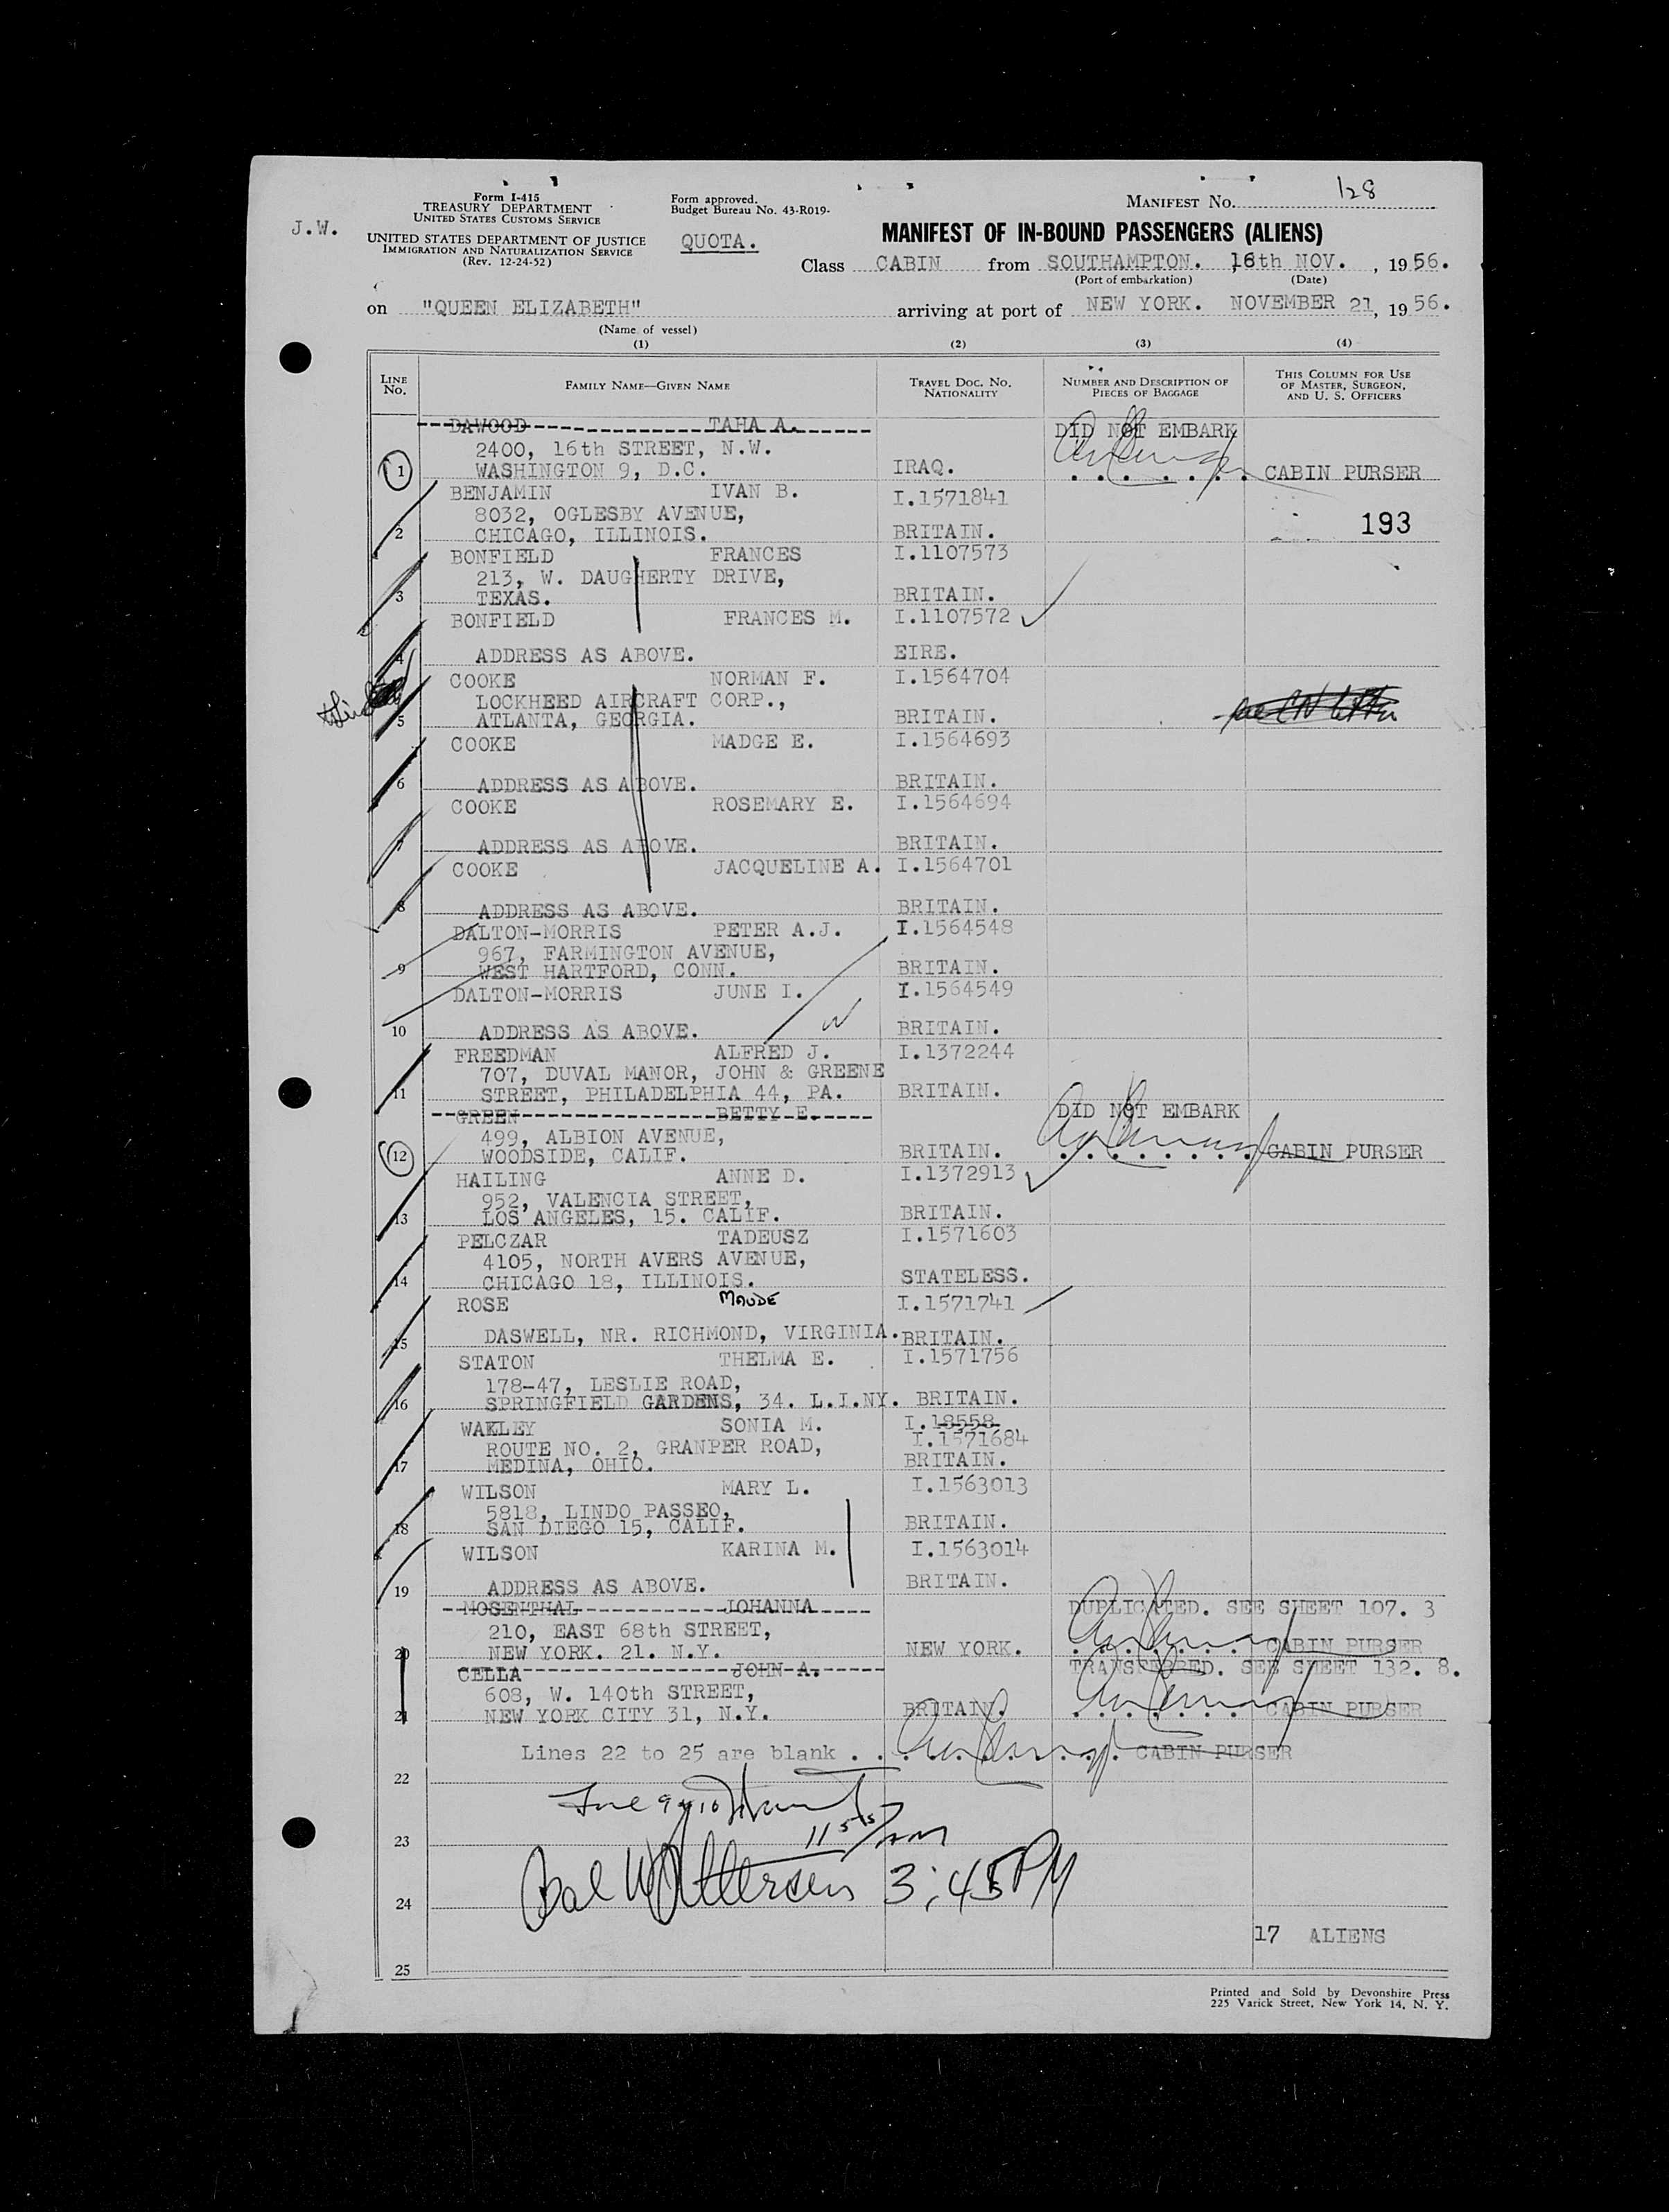 J.W.
Form I-415
TREASURY DEPARTMENT
UNITED STATES CUSTOMS SERVICE
UNITED STATES DEPARTMENT OF JUSTICE
IMMIGRATION AND NATURALIZATION SERVICE
(Rev. 12-24-52)
Form approved.
Budget Bureau No. 43-R019-
QUOTA.
MANIFEST NO. 128
MANIFEST OF IN-BOUND PASSENGERS (ALIENS)
Class CABIN from SOUTHAMPTON. 16th NOV. , 1956.
(Port of embarkation) (Date)
on "QUEEN ELIZABETH" arriving at port of NEW YORK. NOVEMBER 21, 1956.
(Name of vessel)
(1) (2) (3) (4)
LINE NO. FAMILY NAME—GIVEN NAME TRAVEL DOC. NO. NATIONALITY NUMBER AND DESCRIPTION OF PIECES OF BAGGAGE THIS COLUMN FOR USE OF MASTER, SURGEON, AND U. S. OFFICERS
DAWOOD TAHA A. DID NOT EMBARK
2400, 16th STREET, N.W.
1 WASHINGTON 9, D.C. IRAQ. CABIN PURSER
BENJAMIN IVAN B. I.1571841
8032, OGLESBY AVENUE, 193
2 CHICAGO, ILLINOIS. BRITAIN.
BONFIELD FRANCES I.1107573
213, W. DAUGHERTY DRIVE,
3 TEXAS. BRITAIN.
BONFIELD FRANCES M. I.1107572
4 ADDRESS AS ABOVE. EIRE.
COOKE NORMAN F. I.1564704
LOCKHEED AIRCRAFT CORP.,
5 ATLANTA, GEORGIA. BRITAIN.
COOKE MADGE E. I.1564693
6 ADDRESS AS ABOVE. BRITAIN.
COOKE ROSEMARY E. I.1564694
7 ADDRESS AS ABOVE. BRITAIN.
COOKE JACQUELINE A. I.1564701
8 ADDRESS AS ABOVE. BRITAIN.
DALTON-MORRIS PETER A.J. I.1564548
967, FARMINGTON AVENUE,
9 WEST HARTFORD, CONN. BRITAIN.
DALTON-MORRIS JUNE I. I.1564549
10 ADDRESS AS ABOVE. BRITAIN.
FREEDMAN ALFRED J. I.1372244
707, DUVAL MANOR, JOHN & GREENE
11 STREET, PHILADELPHIA 44, PA. BRITAIN.
GREEN BETTY E. DID NOT EMBARK
499, ALBION AVENUE,
12 WOODSIDE, CALIF. BRITAIN. CABIN PURSER
HAILING ANNE D. I.1372913
952, VALENCIA STREET,
13 LOS ANGELES, 15. CALIF. BRITAIN.
PELCZAR TADEUSZ I.1571603
4105, NORTH AVERS AVENUE,
14 CHICAGO 18, ILLINOIS. STATELESS.
ROSE MAUDE I.1571741
15 DASWELL, NR. RICHMOND, VIRGINIA. BRITAIN.
STATON THELMA E. I.1571756
178-47, LESLIE ROAD,
16 SPRINGFIELD GARDENS, 34. L.I.NY. BRITAIN.
WAKLEY SONIA M. I.18558
ROUTE NO. 2, GRANPER ROAD, I.1571684
17 MEDINA, OHIO. BRITAIN.
WILSON MARY L. I.1563013
5818, LINDO PASSEO,
18 SAN DIEGO 15, CALIF. BRITAIN.
WILSON KARINA M. I.1563014
19 ADDRESS AS ABOVE. BRITAIN.
MOSENTHAL JOHANNA DUPLICATED. SEE SHEET 107. 3
210, EAST 68th STREET,
20 NEW YORK. 21. N.Y. NEW YORK. CABIN PURSER
CELLA JOHN A. TRANSFERRED. SEE SHEET 132. 8.
608, W. 140th STREET,
21 NEW YORK CITY 31, N.Y. BRITAIN. CABIN PURSER
Lines 22 to 25 are blank . . CABIN PURSER
22
23
24 3:45 PM
17 ALIENS
25
Printed and Sold by Devonshire Press
225 Varick Street, New York 14, N. Y.